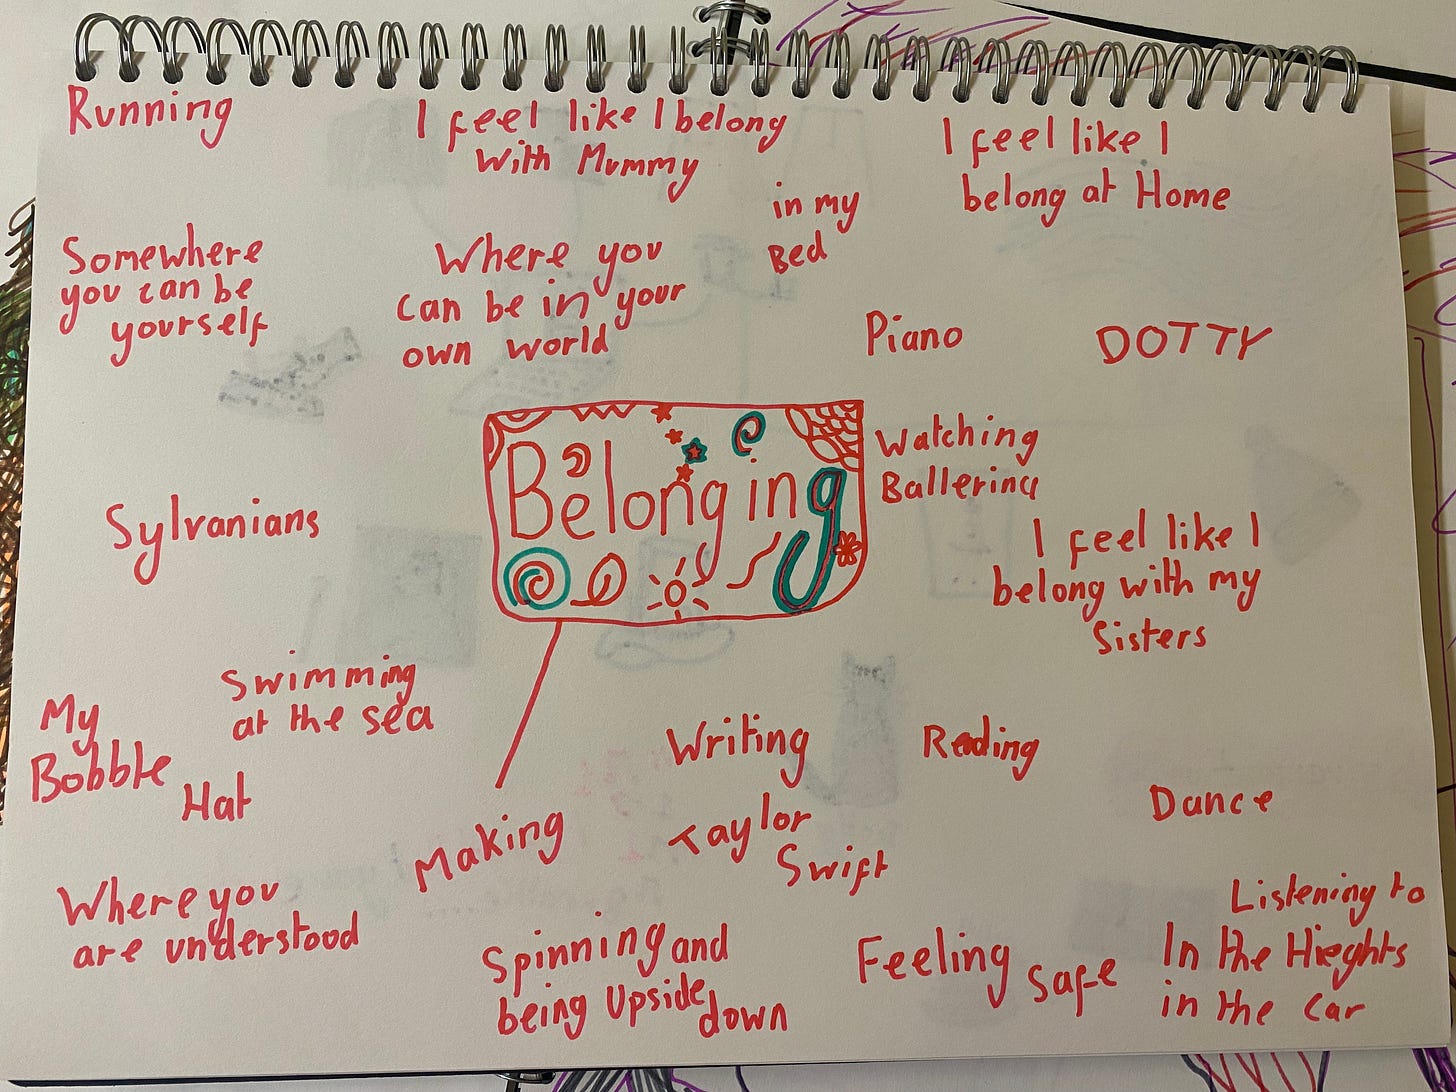 Running
I feel like I belong
with Mummy
I feel like I
belong at Home
in my
Bed
Somewhere
you can be
yourself
Where you
can be in your
own world
Piano
DOTTY
Belonging
Watching
Ballerina
Sylvanians
I feel like I
belong with my
Sisters
Swimming
at the sea
My
Bobble
Hat
Writing
Reading
Making
Taylor
Swift
Dance
Where you
are understood
Spinning and
being Upside
down
Feeling
Safe
Listening to
In the Hieghts
in the car